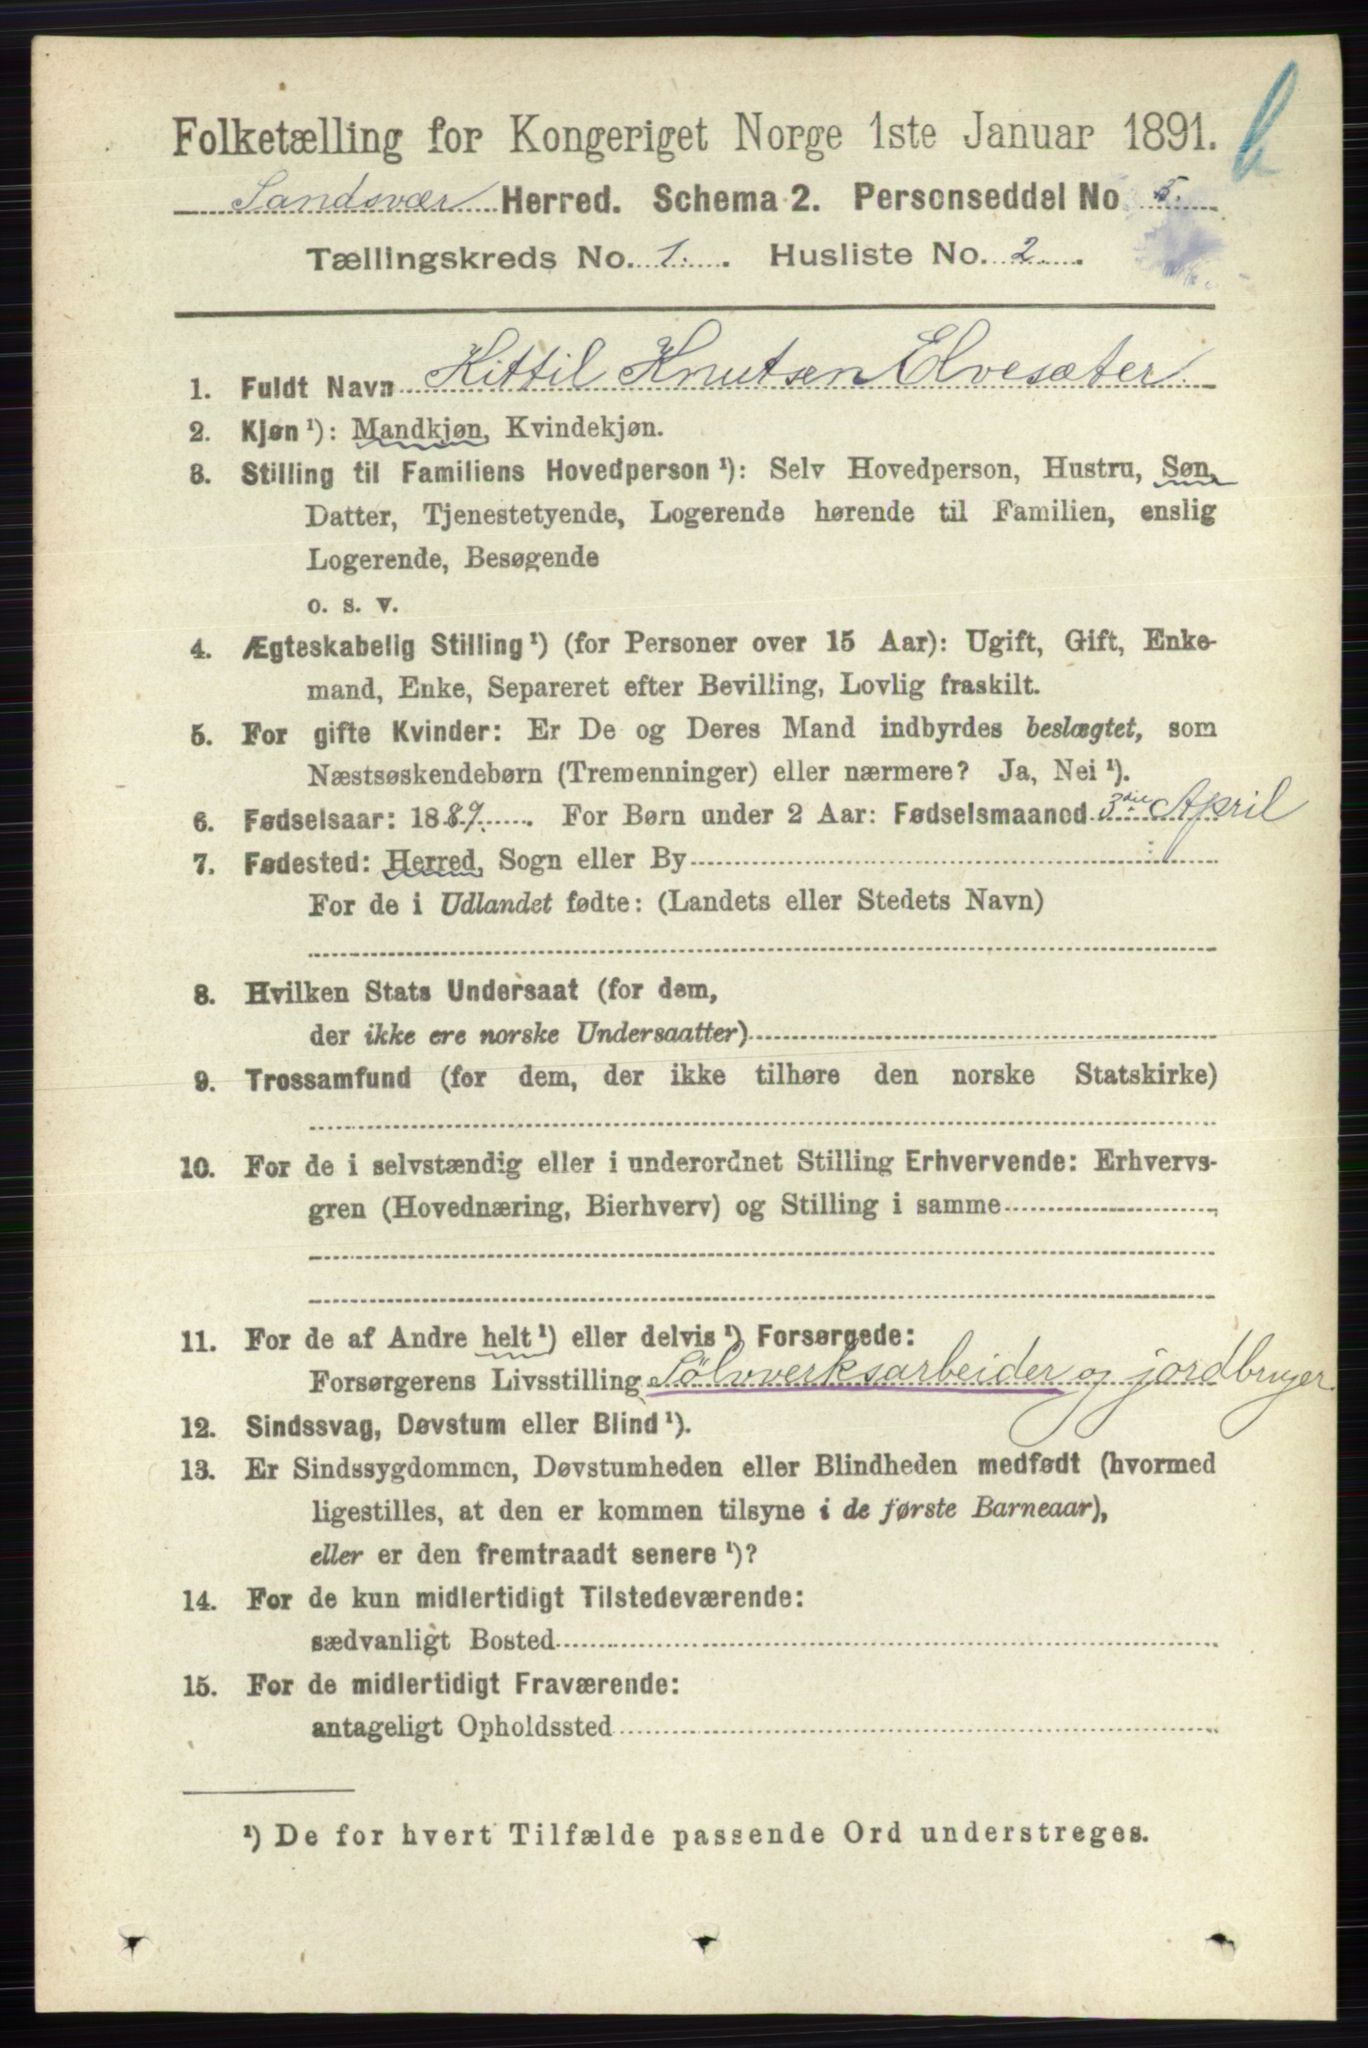 b
Folketælling for Kongeriget Norge 1ste Januar 1891.
Sandsvær Herred. Schema 2. Personseddel No. 5.
Tællingskreds No. 1. Husliste No. 2.
1. Fuldt Navn Kittil Knutsen Elvesæter.
2. Kjøn ¹): Mandkjøn, Kvindekjøn.
3. Stilling til Familiens Hovedperson ¹): Selv Hovedperson, Hustru, Søn,
Datter, Tjenestetyende, Logerende hørende til Familien, enslig
Logerende, Besøgende
o. s. v.
4. Ægteskabelig Stilling ¹) (for Personer over 15 Aar): Ugift, Gift, Enke-
mand, Enke, Separeret efter Bevilling, Lovlig fraskilt.
5. For gifte Kvinder: Er De og Deres Mand indbyrdes beslægtet, som
Næstsøskendebørn (Tremenninger) eller nærmere? Ja, Nei ¹).
6. Fødselsaar: 1889. For Børn under 2 Aar: Fødselsmaaned 3die April
7. Fødested: Herred, Sogn eller By
For de i Udlandet fødte: (Landets eller Stedets Navn)
8. Hvilken Stats Undersaat (for dem,
der ikke ere norske Undersaatter)
9. Trossamfund (for dem, der ikke tilhøre den norske Statskirke)
10. For de i selvstændig eller i underordnet Stilling Erhvervende: Erhvervs-
gren (Hovednæring, Bierhverv) og Stilling i samme
11. For de af Andre helt ¹) eller delvis ¹) Forsørgede:
Forsørgerens Livsstilling Sölvverksarbeider og jordbruger
12. Sindssvag, Døvstum eller Blind ¹).
13. Er Sindssygdommen, Døvstumheden eller Blindheden medfødt (hvormed
ligestilles, at den er kommen tilsyne i de første Barneaar),
eller er den fremtraadt senere ¹)?
14. For de kun midlertidigt Tilstedeværende:
sædvanligt Bosted
15. For de midlertidigt Fraværende:
antageligt Opholdssted
¹) De for hvert Tilfælde passende Ord understreges.